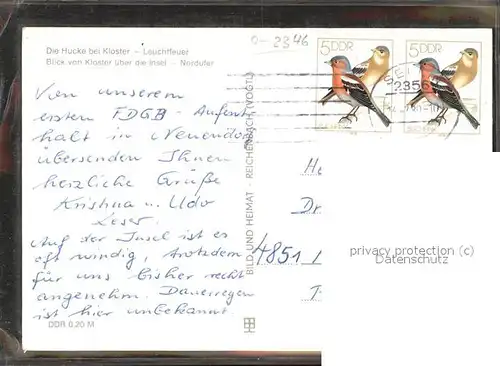 Die Hucke bei Kloster - Leuchtfeuer
Blick von Kloster über die Insel - Nordufer
0-2346
5 DDR
5 DDR
2356
Von unserem
ersten FDGB-Aufent
halt in Neuendorf
übersenden Ihnen
herzliche Grüße
Kristina u. Udo
Leser.
Auf der Insel ist es
oft windig, trotzdem
für uns bisher recht
angenehm. Dauerregen
ist hier unbekannt.
DDR 0,20 M
BILD UND HEIMAT · REICHENBACH (VOGTL)
He
Dr
4851
T
privacy protection (c)
Datenschutz